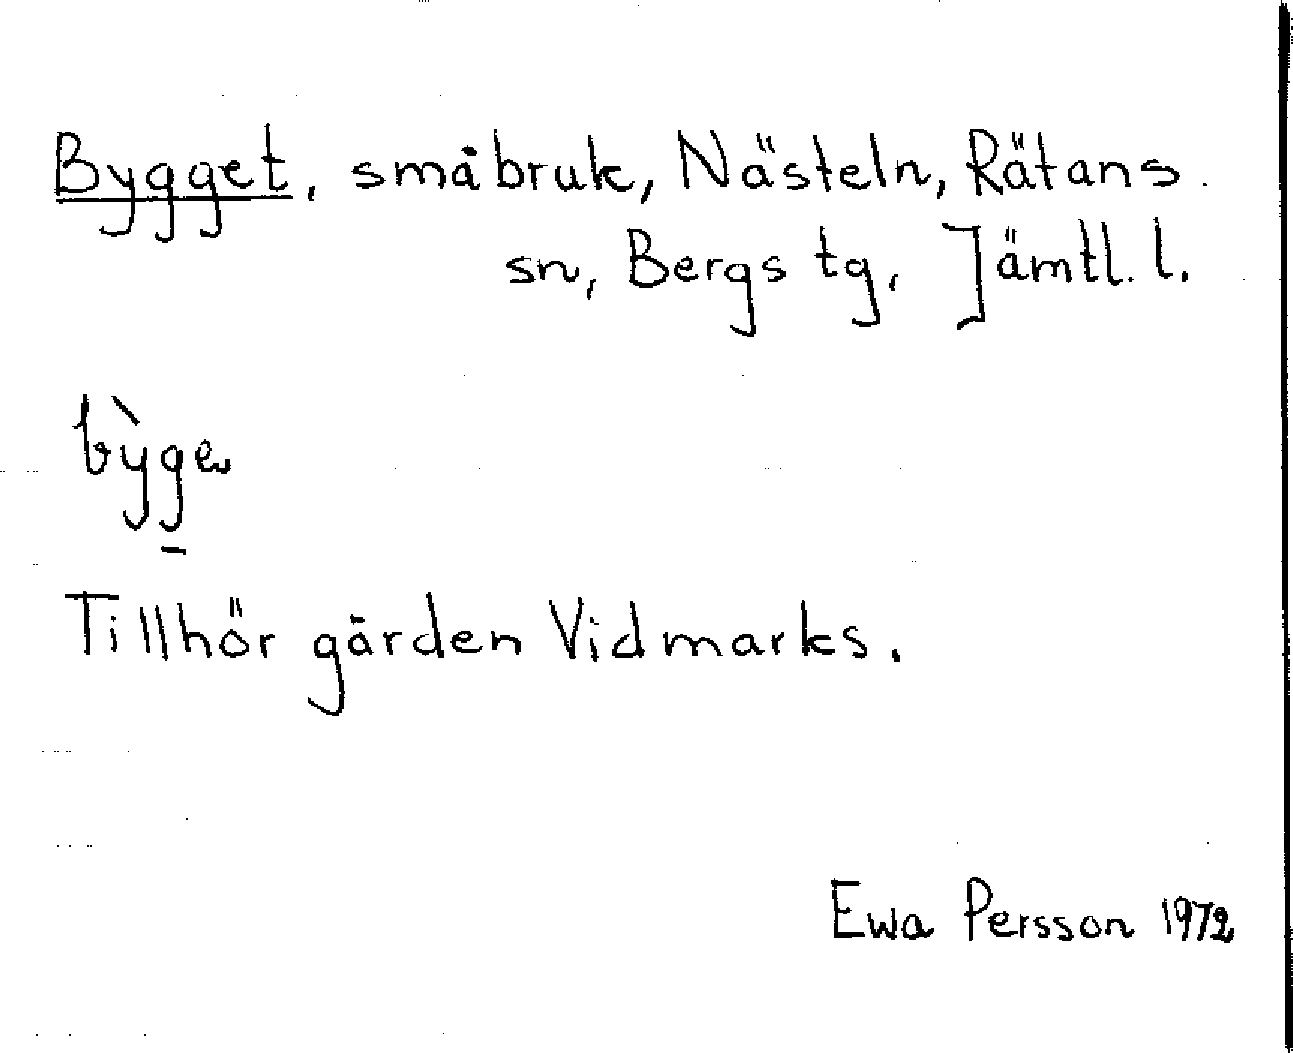 Bygget, småbruk, Nästeln, Rätans
sn, Bergs tg, Jämtl. l.
bỳge
Tillhör gården Vidmarks.
Ewa Persson 1972